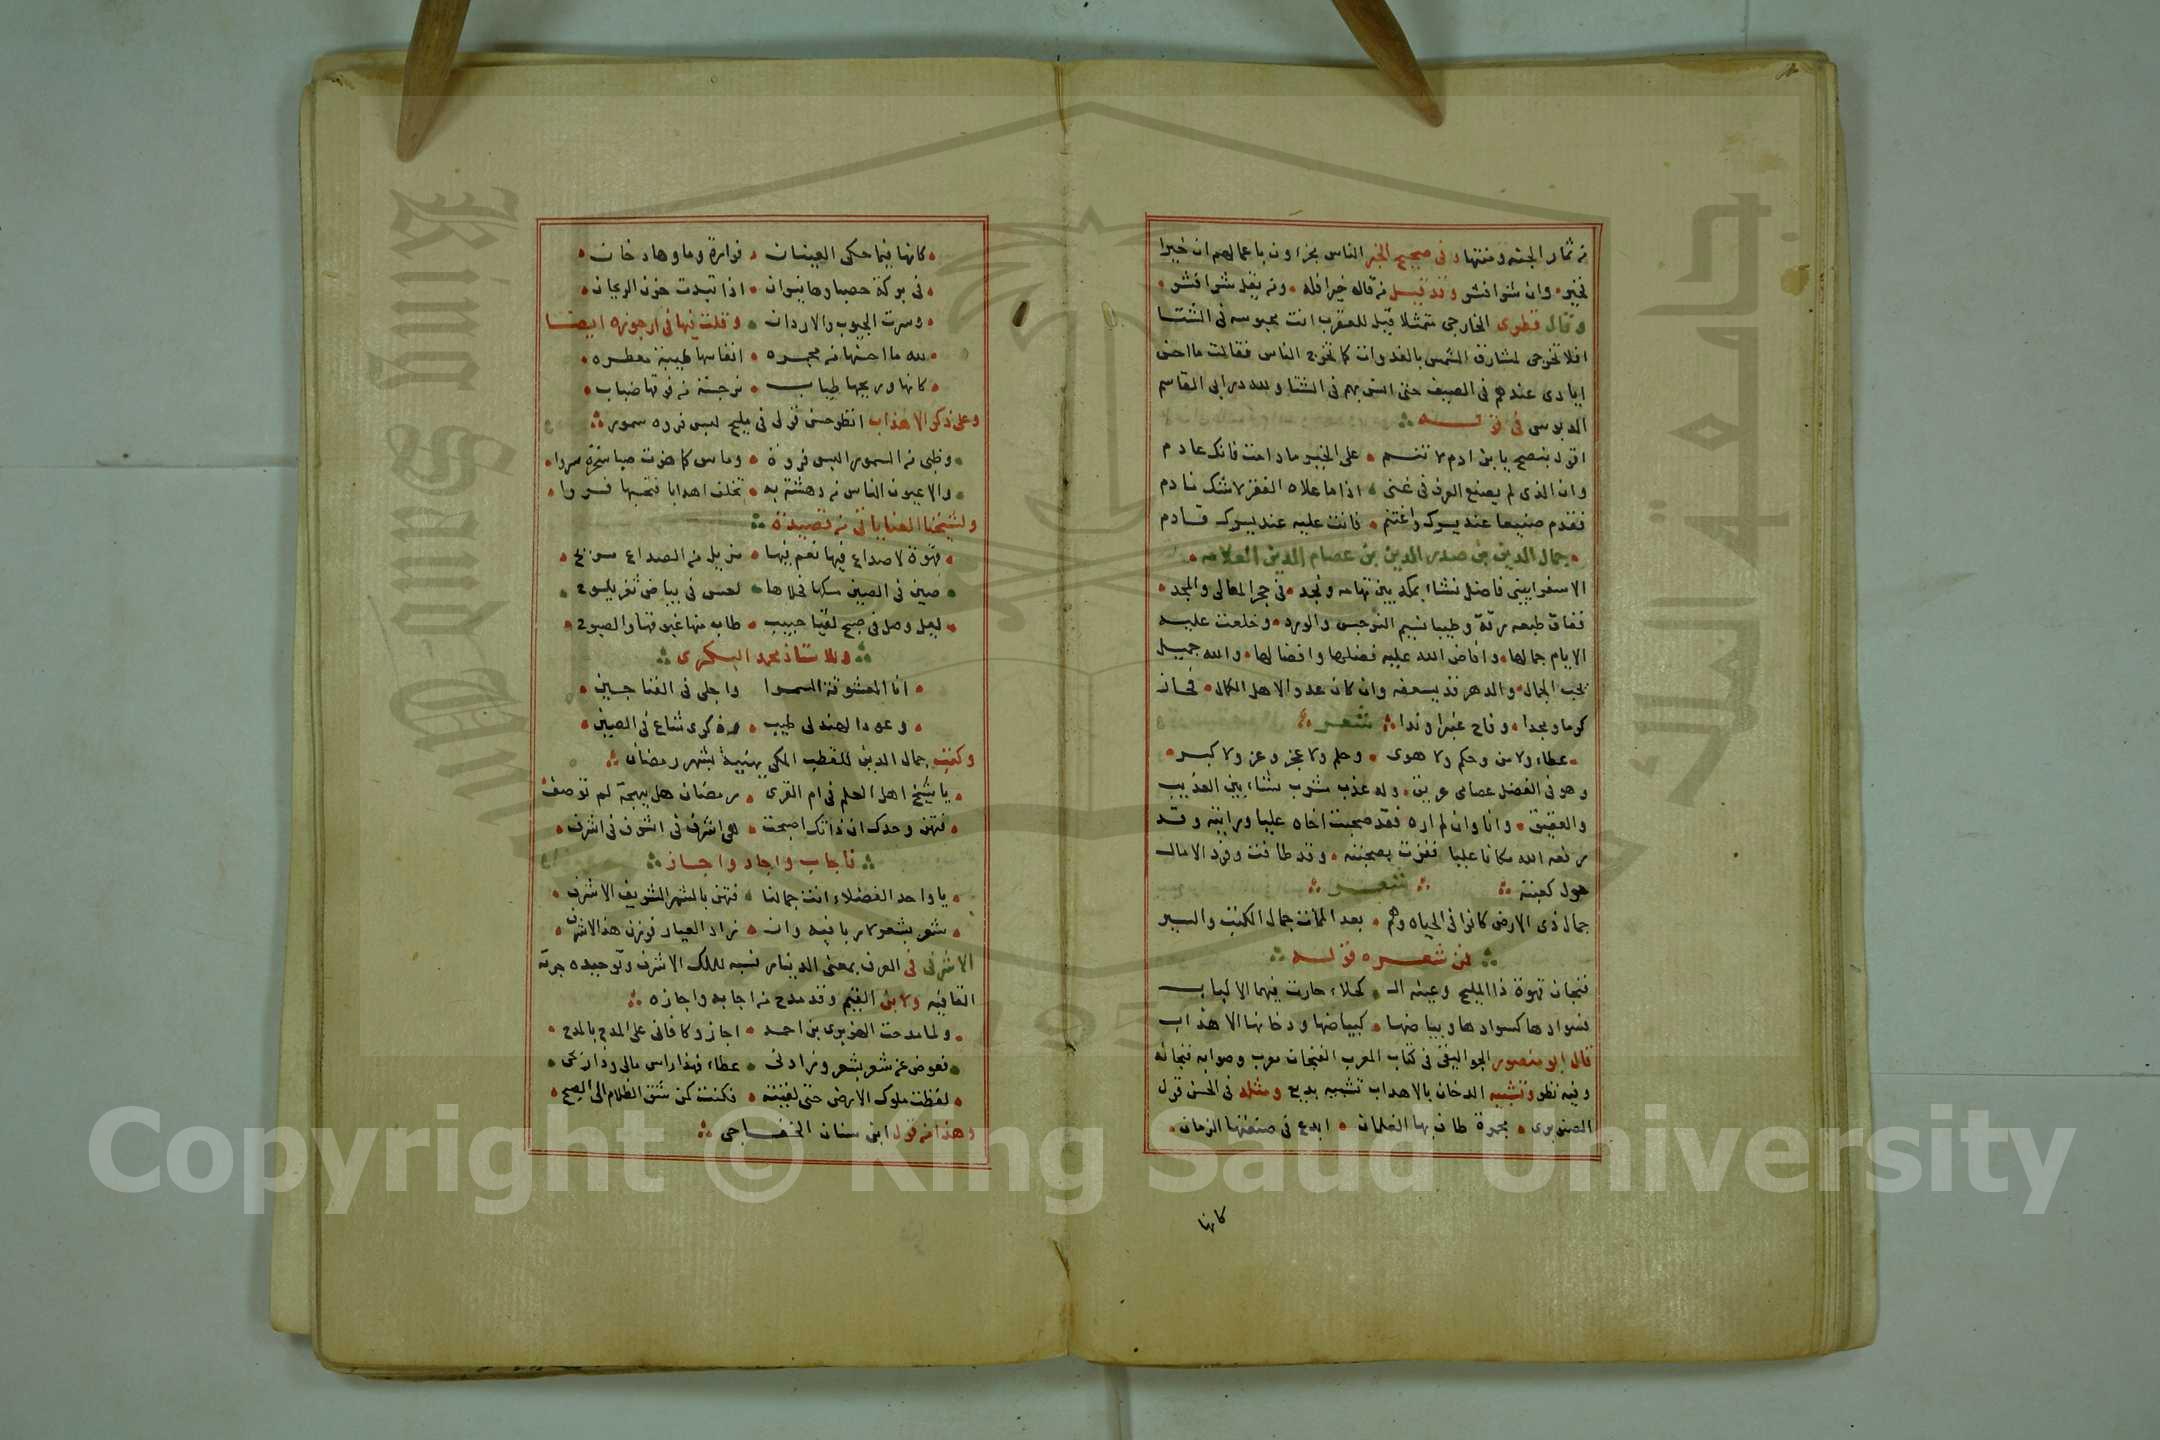 من ثمار الجنة ومنتهاد في صحيح الخبر الناس يجزون باعمالهم ان خيرا
فخير وان شرا فشر وقد قيل من قاله خيرا فله ومن يفعل شرا فشر
وقال قطرى الخارجى متمثلا قيل للعقرب انت محبوسه فى الشتا
افلا تخرجى لمشارق الشمس بالغدوات كما تخرج الناس فقالت ما احسن
ايادى عندهم فى الصيف حتى انس بهم فى الشتا ولله در ابى القاسم
الدبوسى فى قوله
اقول بنصح يا بن ادم لا تنم على الخير ما دامت فانك عادم
وان الذى لم يصنع العرف فى غنى اذا ما علاه الفقر لا شك نادم
فقدم صنيعا عند يسرك واغتنم فانت عليه عند يسرك قادم
جمال الدين بن صدر الدين بن عصام الدين العلامه
الاسفراينى فاضل نشاء بمكة بين تهامه ونجد فى حجر المعالى والمجد
ففاق طبعه رقة وطيبا نسيم النرجس والورد وخلعت عليه
الايام جمالها وافاض الله عليه فضلها وافضالها والله جميل
يحب الجمال والدهر قد يسعف وان كان عدو الاهل الكمال فحاز
كرما ومجدا وفاح عنبرا وندا شعر
عطاء ولا من وحكم ولا هوى وحلم ولا عجز وعز ولا كبر
وهو فى الفضل عصامى عريق وله عذب مشوب نشاء بين العذيب
والعقيق وانا وان لم اره فقد صحبت اخاه عليا ورايته وقد
رفعه الله مكانا عليا ففزت بصحبته وقد طافت وفود الامال
حول كعبته شعر
جمال ذى الارض كانوا فى الحياه وهم بعد الممات جمال الكتب والسير
فن شعره قوله
فنجان قهوة ذا المليح وعينه الـ كحلاء حارت فيهما الالباب
فسوادها كسوادها وبياضها كبياضها ودخانها الاهداب
قال ابو منصور الجواليقى فى كتاب المعرب الفنجان معرب وصوابه فنجانه
وفيه نظر وتشبيه الدخان بالاهداب تشبيه بديع ومثله فى الحسن قول
الصنوبرى مجمرة طاف بها الغلمان ابدع فى صنعتها الزمان
كانها
كانها فيما حكى العينان فوارة وماوها دخان
فى بركة حصباوها نيران اذا تبدت حزن الريحان
وسرت الجيوب والاردان وقلت فيها فى ارجوزه ايضا
لله ما احسنها من مجمره انفاسها طيبة معطره
كانها وريحها طياب نرجسة من فوقها ضباب
وعلى ذكر الاهداب انظر حسن قولى فى مليح لبس فروه سمور
وظبى من السمور البس فروة وماس كما هزت صبا سحرا
والا عيون الناس من دهشة به تخلف اهدابا فتحسبها فروا
ولشيخنا العناياتى من قصيدة
قهوة لا صداع فيها نعم فيها مزيل من الصداع مريح
صين فى الصين سكها فحلاها لعس فى بياض ثغر يلوح
ليل وصل فى صبح لقيا حبيب طاب منها غبوقها والصبوح
وللاستاذ محمد البكرى
انا المعشوقة السمرا واجلى فى الفناجين
وعود الهند لى طيب وذكرى شاع فى الصين
وكتب جمال الدين للقطب المكى يهنيه بشهر رمضان
يا شيخ اهل العلم فى ام القرى رمضان هل ببهجة لم توصف
فتهن وحدك ان ذاتك اصبحت هى اشرف فى اشرف فى اشرف
فاجاب واجاد واجاز
يا واحد الفضلاء انت جمالنا فتهن بالشهر الشريف الاشرف
شعر بشعر لا ربا فيه وان زاد العيار فوزن هذا الاشرفى
الاشرفى فى العرف بمعنى الدينار نسبه للملك الاشرف وتوحيده حركة
القافيه ولابن القيم وقد مدح من اجابه واجازه
ولما مدحت الهبرزى بن احمد اجاز وكافانى على المدح بالمدح
فعوض عن شعر بشعر وزادنى عطاء فهذا راس مالى وذا ربحى
لفظت ملوك الارض حتى لقيته فكنت كمن شق الظلام الى الصبح
وهذا من قول ابن سنان الخفاجى
Copyright © King Saud University